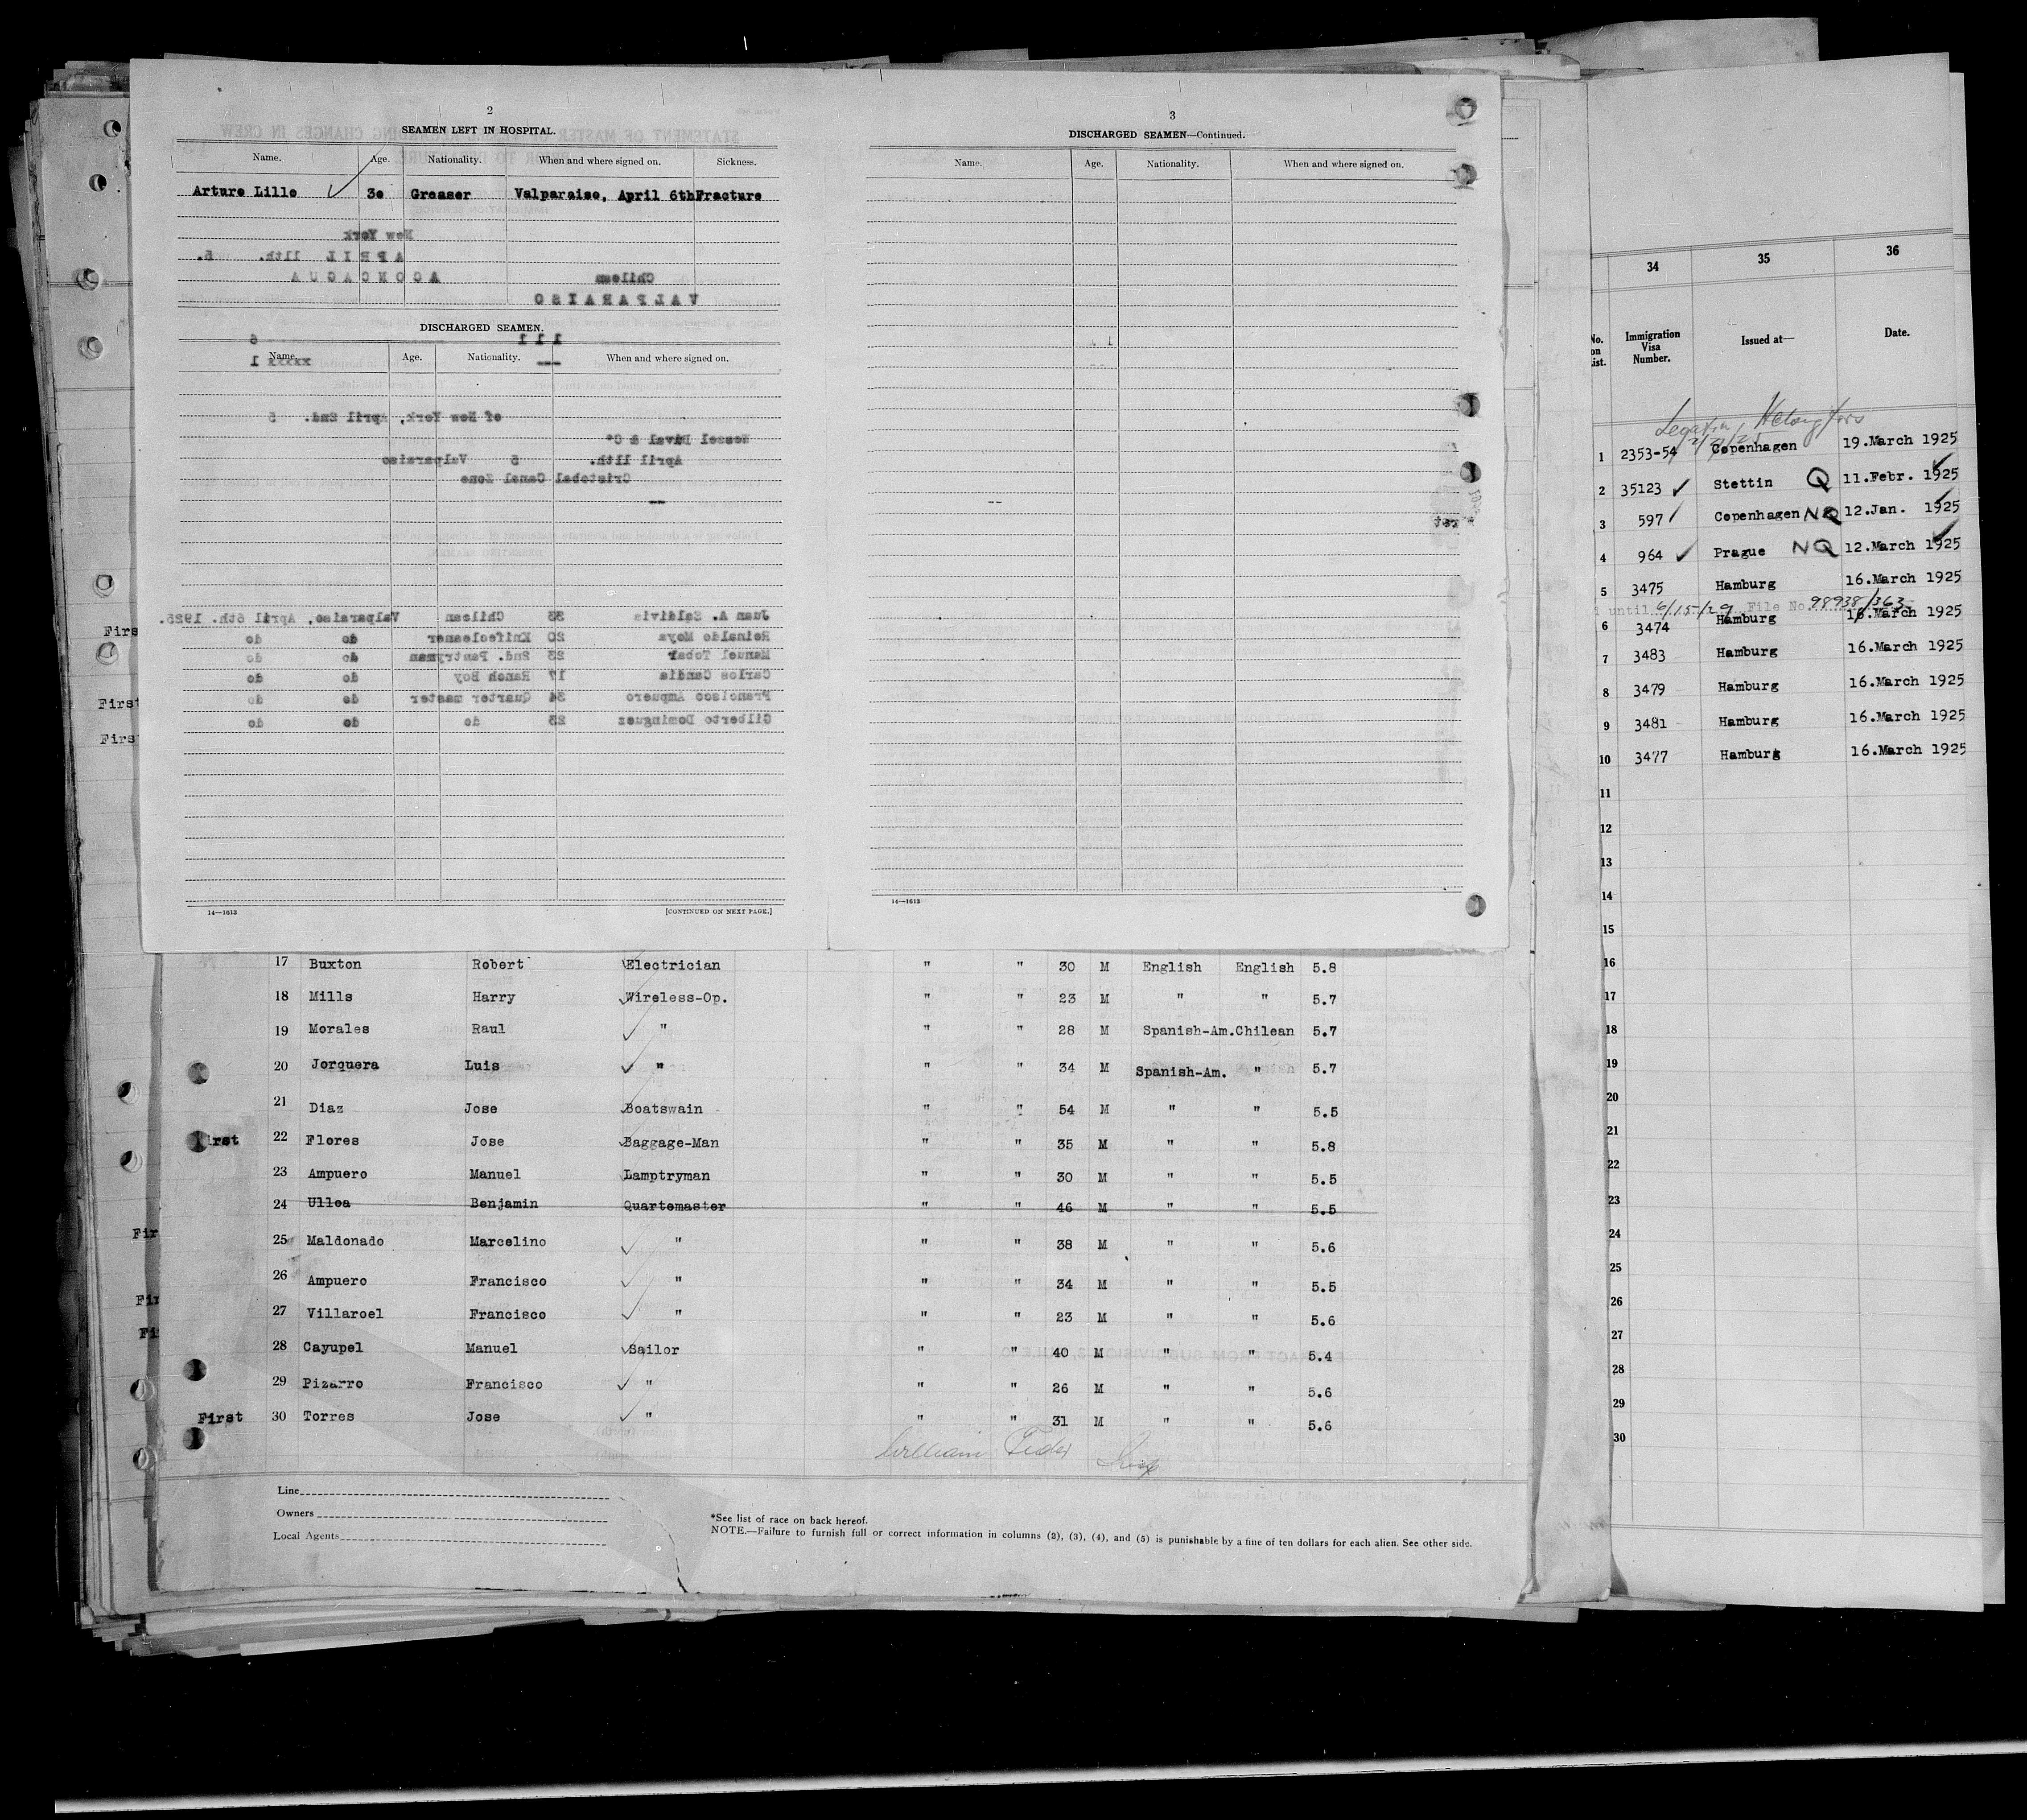 2
SEAMEN LEFT IN HOSPITAL.
Name. Age. Nationality. When and where signed on. Sickness.
Arturo Lillo 30 Greaser Valparaiso, April 6th Fracture
New York
APRIL 11th. 5.
ACONCAGUA
Chilean
VALPARAISO
DISCHARGED SEAMEN.
6 111
Name. Age. Nationality. When and where signed on.
xxxxx 1 ---
of New York, April 2nd. 5
Wessel Duval & Co
April 11th. 5 Valparaiso
Cristobal Canal Zone
--
Juan A. Baldivia 33 Chilean Valparaiso, April 6th. 1925.
Reinaldo Moya 20 Knifecleaner do do
Manuel Tobar 23 2nd. Pantryman do do
Carlos Candia 17 Ranch Boy do do
Francisco Ampuero 34 Quarter master do do
Gilberto Dominguez 23 do do do
14—1613 [CONTINUED ON NEXT PAGE.]
3
DISCHARGED SEAMEN—Continued.
Name. Age. Nationality. When and where signed on.
14—1613
First
First
17 Buxton Robert Electrician " " 30 M English English 5.8
18 Mills Harry Wireless-Op. " " 23 M " " 5.7
19 Morales Raul " " " 28 M Spanish-Am. Chilean 5.7
20 Jorquera Luis " " " 34 M Spanish-Am. " 5.7
21 Diaz Jose Boatswain " " 54 M " " 5.5
First 22 Flores Jose Baggage-Man " " 35 M " " 5.8
23 Ampuero Manuel Lamptryman " " 30 M " " 5.5
24 Ulloa Benjamin Quartemaster " " 46 M " " 5.5
25 Maldonado Marcelino " " " 38 M " " 5.6
26 Ampuero Francisco " " " 34 M " " 5.5
27 Villaroel Francisco " " " 23 M " " 5.6
28 Cayupel Manuel Sailor " " 40 M " " 5.4
29 Pizarro Francisco " " " 26 M " " 5.6
First 30 Torres Jose " " " 31 M " " 5.6
William
Line
Owners
Local Agents
*See list of race on back hereof.
NOTE.—Failure to furnish full or correct information in columns (2), (3), (4), and (5) is punishable by a fine of ten dollars for each alien. See other side.
34 35 36
No. on List. Immigration Visa Number. Issued at— Date.
Legation, Helsingfors
1 2353-54 Copenhagen 19.March 1925
2 35123 Stettin Q 11.Febr. 1925
3 597 Copenhagen NQ 12.Jan. 1925
4 964 Prague NQ 12.March 1925
5 3475 Hamburg 16.March 1925
until 6/15/29 File No. 98938/363
6 3474 Hamburg 16.March 1925
7 3483 Hamburg 16.March 1925
8 3479 Hamburg 16.March 1925
9 3481 Hamburg 16.March 1925
10 3477 Hamburg 16.March 1925
11
12
13
14
15
16
17
18
19
20
21
22
23
24
25
26
27
28
29
30